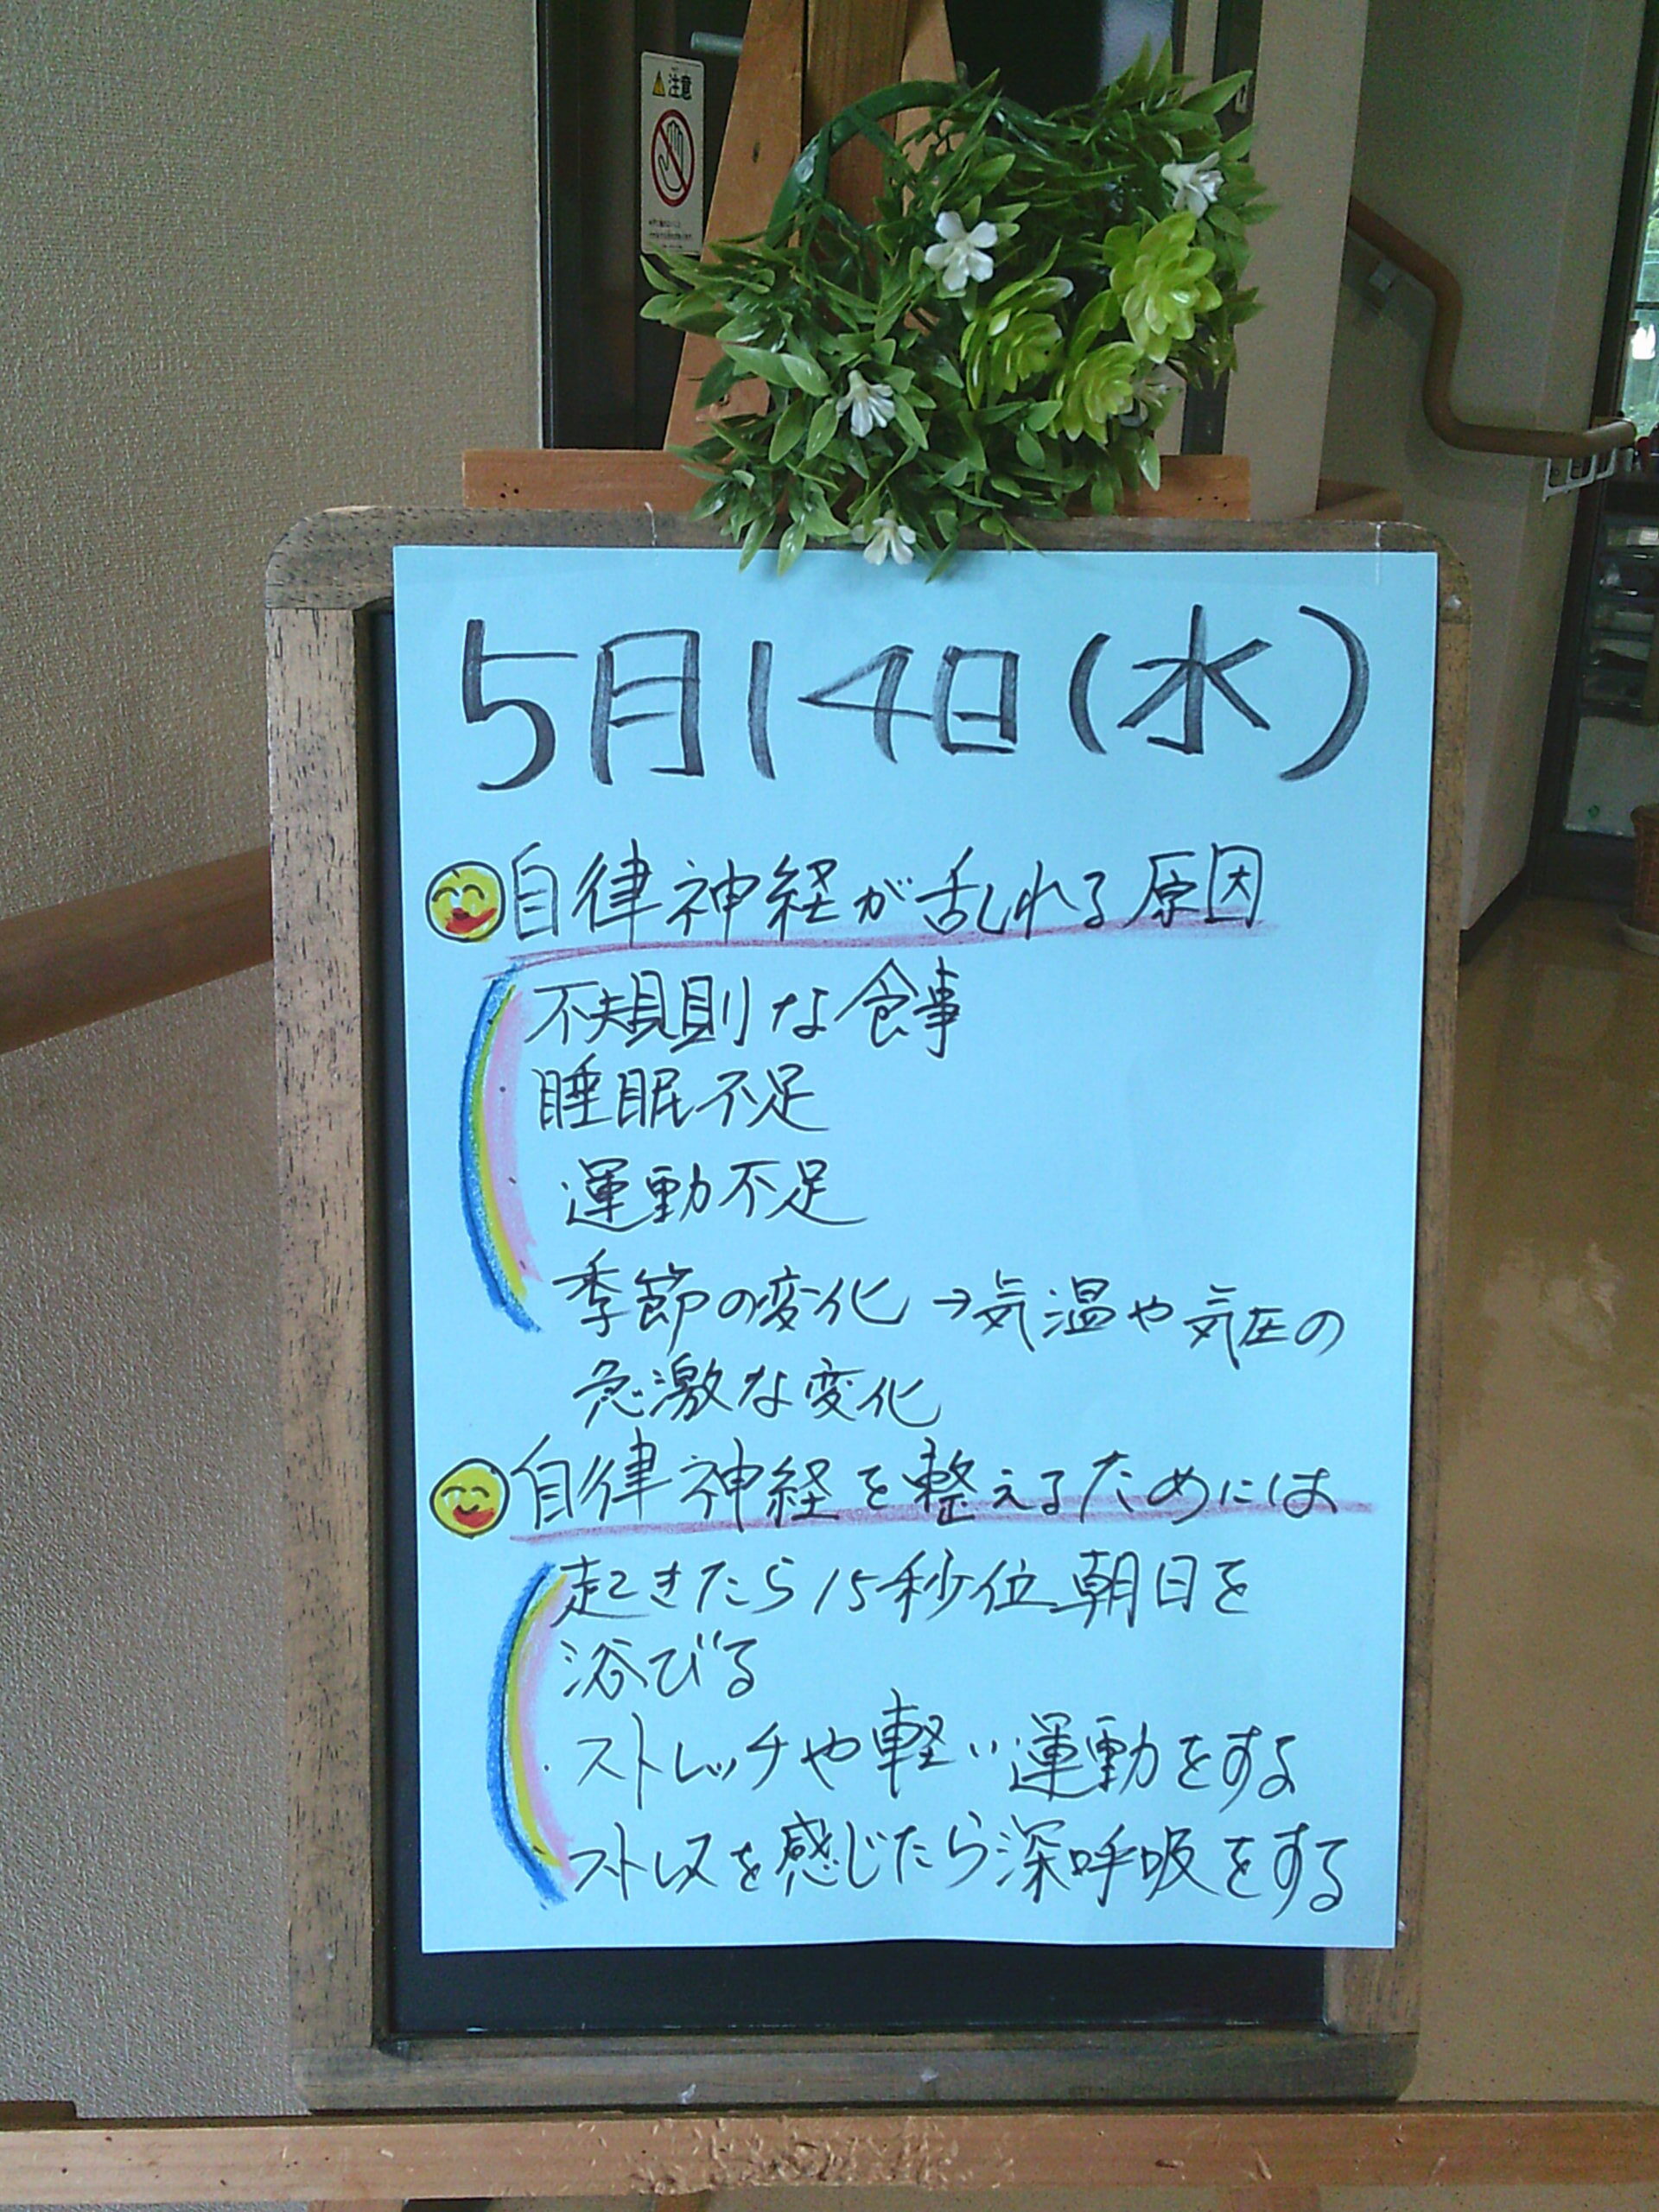 注意
5月14日(水)
自律神経が乱れる原因
不規則な食事
睡眠不足
運動不足
季節の変化→気温や気圧の
急激な変化
自律神経を整えるためには
起きたら15秒位朝日を
浴びる
ストレッチや軽い運動をする
ストレスを感じたら深呼吸をする